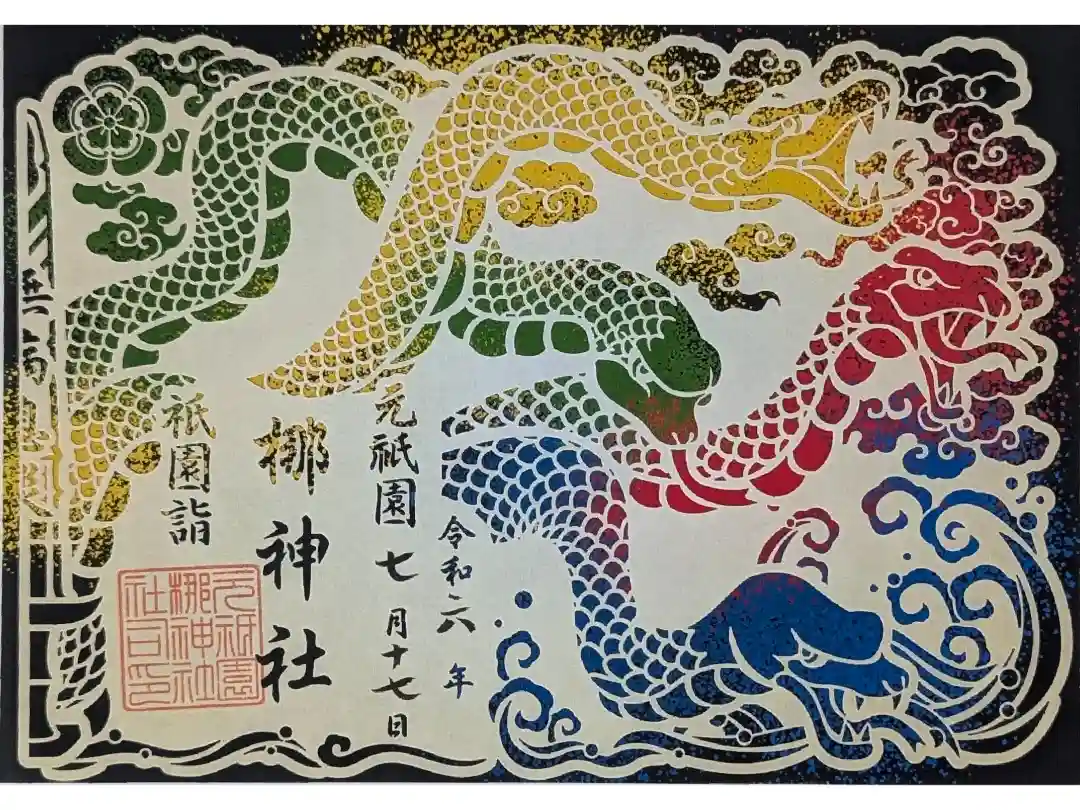 令和六年
元祇園 七月十七日
梛神社
祇園詣
元祇園
梛神社
社司印